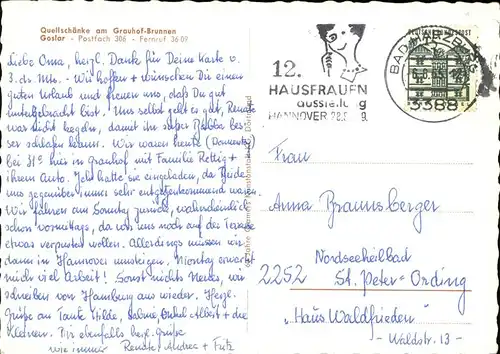 Quellschänke am Grauhof-Brunnen
Goslar - Postfach 306 - Fernruf 3609
Liebe Oma, herzl. Dank für Deine Karte v.
3. ds. Mts. - Wir hoffen + wünschen Dir einen
guten Urlaub und freuen uns, daß Du gut
untergebracht bist. Uns selbst geht es gut, Renate
war nicht kegeln, damit ihr
ser schlafen kann. Wir waren heute (Donnerstag)
bei 31° hier in Grauhof mit Familie Rettig +
ihrem Auto. Ich hatte sie eingeladen, da Beide
uns gegenüber immer sehr entgegenkommend waren.
Wir fahren am Sonntag zurück, wahrscheinlich
schon vormittags, da wir uns noch auf der Terrasse
etwas verpusten wollen. Allerdings müssen wir
dann in Hannover umsteigen. Montag erwartet
mich viel Arbeit! Sonst nichts Neues, wir
schreiben von Hamburg aus wieder. Herzl.
Grüße an Tante Hilde, Sabine, Onkel Albert + die
Kleinen. Dir ebenfalls herzl. Grüße
wie immer Renate, Andrea + Fritz
12.
HAUSFRAUEN
ausstellung
HANNOVER 28.8.
BAD HARZBURG
3388
DEUTSCHE BUNDESPOST
Frau
Anna Braunsberger
Nordseeheilbad
2252 St. Peter-Ording
"Haus Waldfrieden"
- Waldstr. 13 -